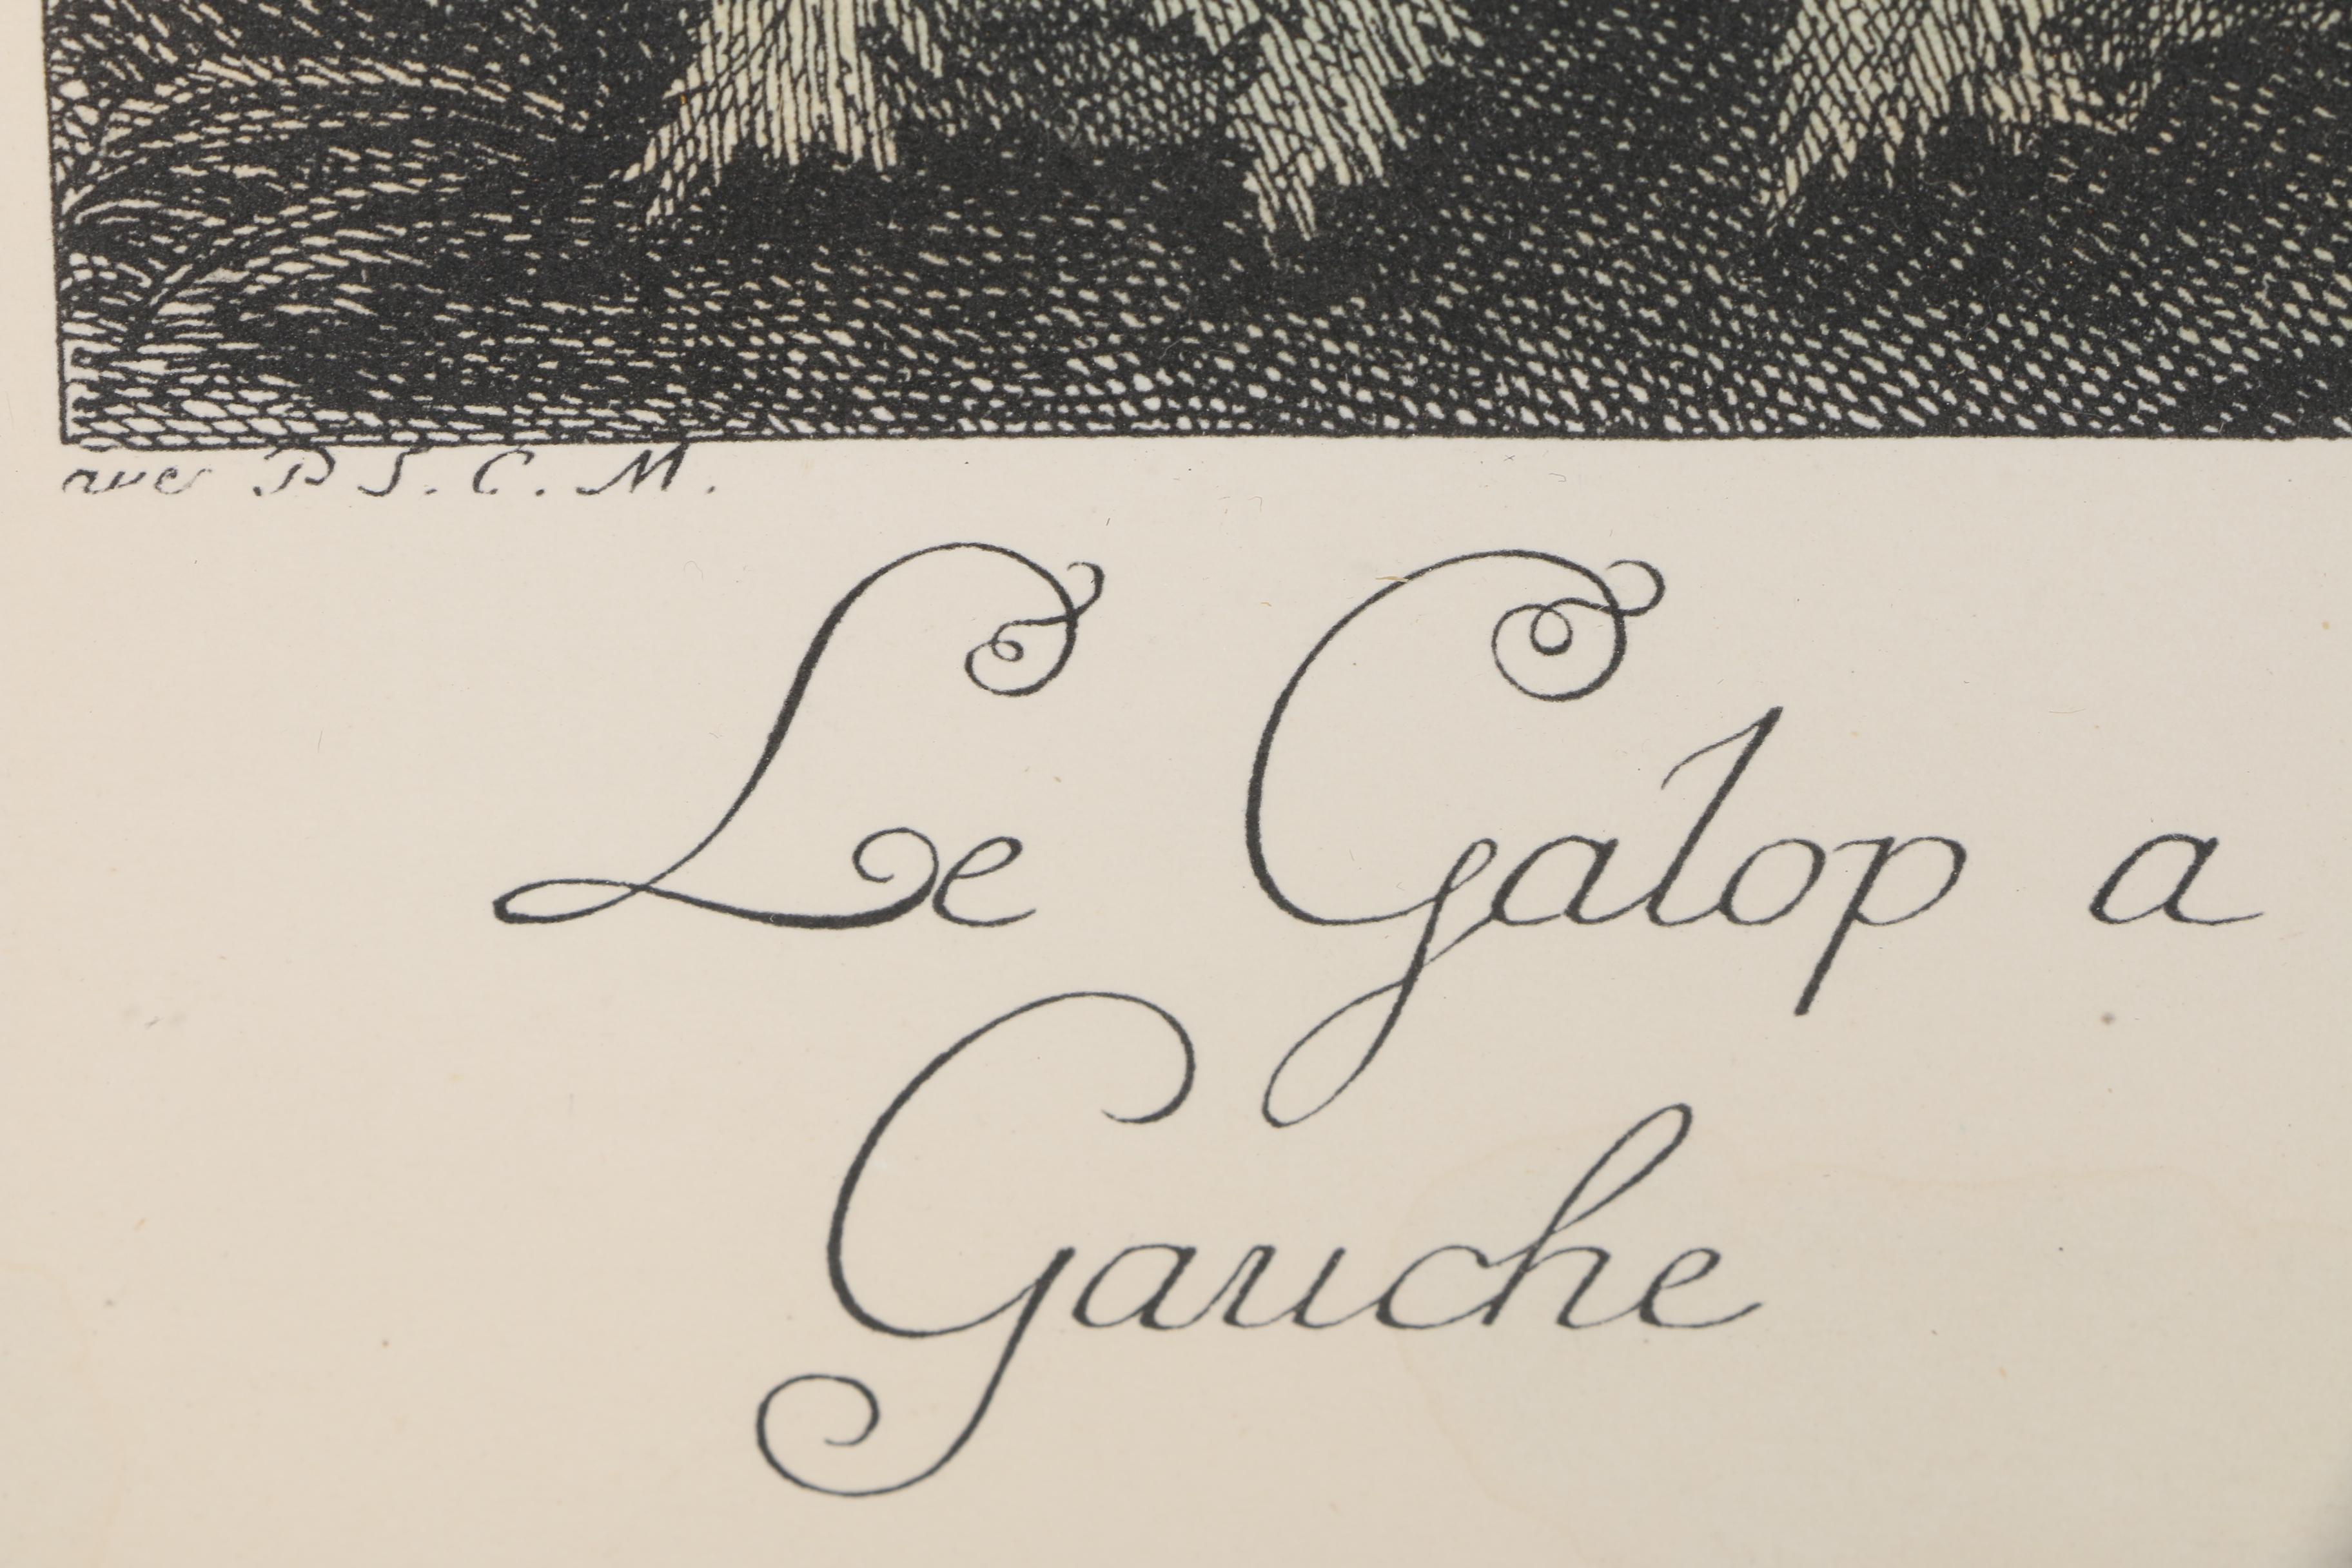 avec P S. C. M.
Le Galop a
Gauche